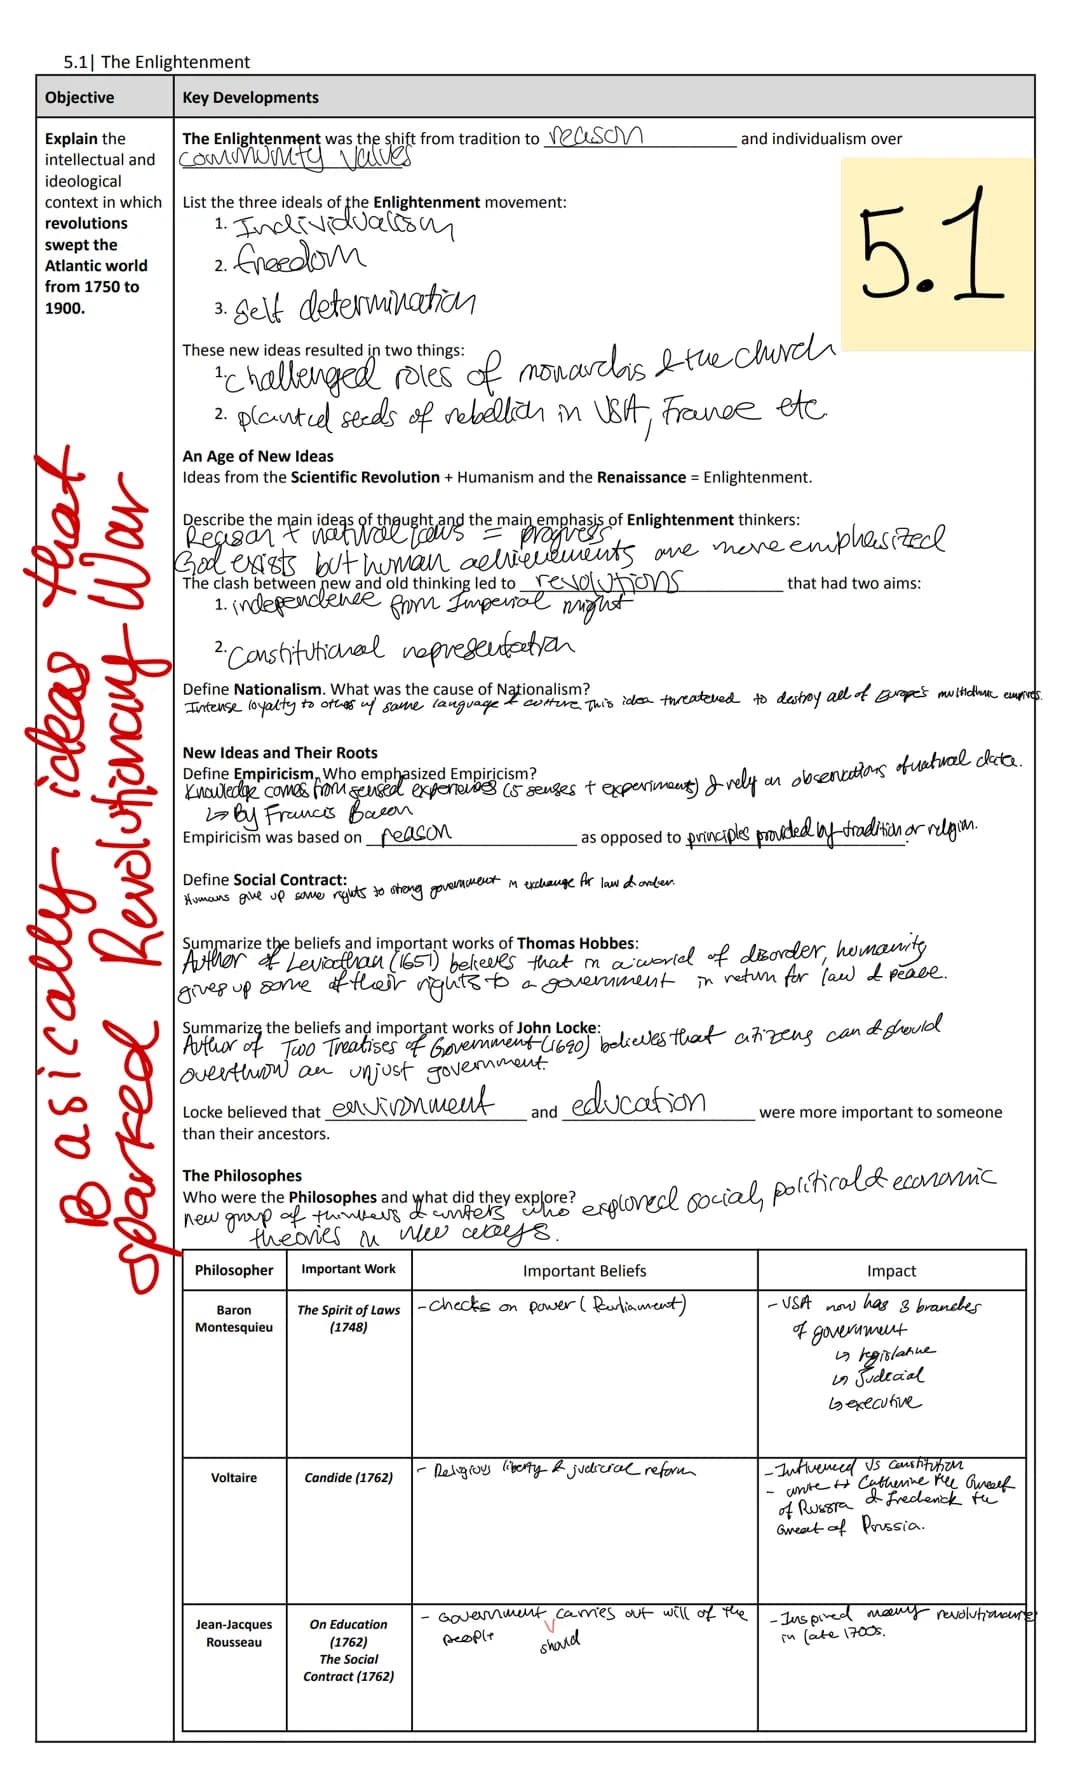 5.1| The Enlightenment
Objective
Key Developments
Explain the
intellectual and
ideological
context in which
revolutions
swept the
Atlantic world
from 1750 to
1900.
Basically ideas that
sparked Revolutionary War
The Enlightenment was the shift from tradition to reason and individualism over
community values
5.1
List the three ideals of the Enlightenment movement:
1. Individualism
2. freedom
3. Self determination
These new ideas resulted in two things:
1. Challenged roles of monarchs & the church
2. planted seeds of rebellion in USA, France etc.
An Age of New Ideas
Ideas from the Scientific Revolution + Humanism and the Renaissance = Enlightenment.
Describe the main ideas of thought and the main emphasis of Enlightenment thinkers:
Reason + natural laws = progress
God exists but human achievements are more emphasized
The clash between new and old thinking led to revolutions that had two aims:
1. independence from Imperial might
2. Constitutional representation
Define Nationalism. What was the cause of Nationalism?
Intense loyalty to others w/ same language & culture. This idea threatened to destroy all of Europe's multiethnic empires.
New Ideas and Their Roots
Define Empiricism. Who emphasized Empiricism?
Knowledge comes from sensed experiences (5 senses + experiments) & rely on observations of natural data.
↳ By Francis Bacon
Empiricism was based on reason as opposed to principles provided by tradition or religion.
Define Social Contract:
Humans give up some rights to strong government in exchange for law & order.
Summarize the beliefs and important works of Thomas Hobbes:
Author of Leviathan (1651) believes that in a world of disorder, humanity
gives up some of their rights to a government in return for law & peace.
Summarize the beliefs and important works of John Locke:
Author of Two Treatises of Government (1690) believes that citizens can & should
overthrow an unjust government.
Locke believed that environment and education were more important to someone
than their ancestors.
The Philosophes
Who were the Philosophes and what did they explore?
new group of thinkers & writers who explored social, political & economic
theories in new ways.
Philosopher
Important Work
Important Beliefs
Impact
Baron
Montesquieu
The Spirit of Laws
(1748)
- checks on power (Parliament)
- USA now has 3 branches
of government
↳ legislative
↳ Judicial
↳ executive
Voltaire
Candide (1762)
- Religious liberty & judicial reform
- Influenced US constitution
- wrote to Catherine the Great
of Russia & Frederick the
Great of Prussia.
Jean-Jacques
Rousseau
On Education
(1762)
The Social
Contract (1762)
- Government carries out will of the
people
should
- Inspired many revolutionaries
in late 1700s.